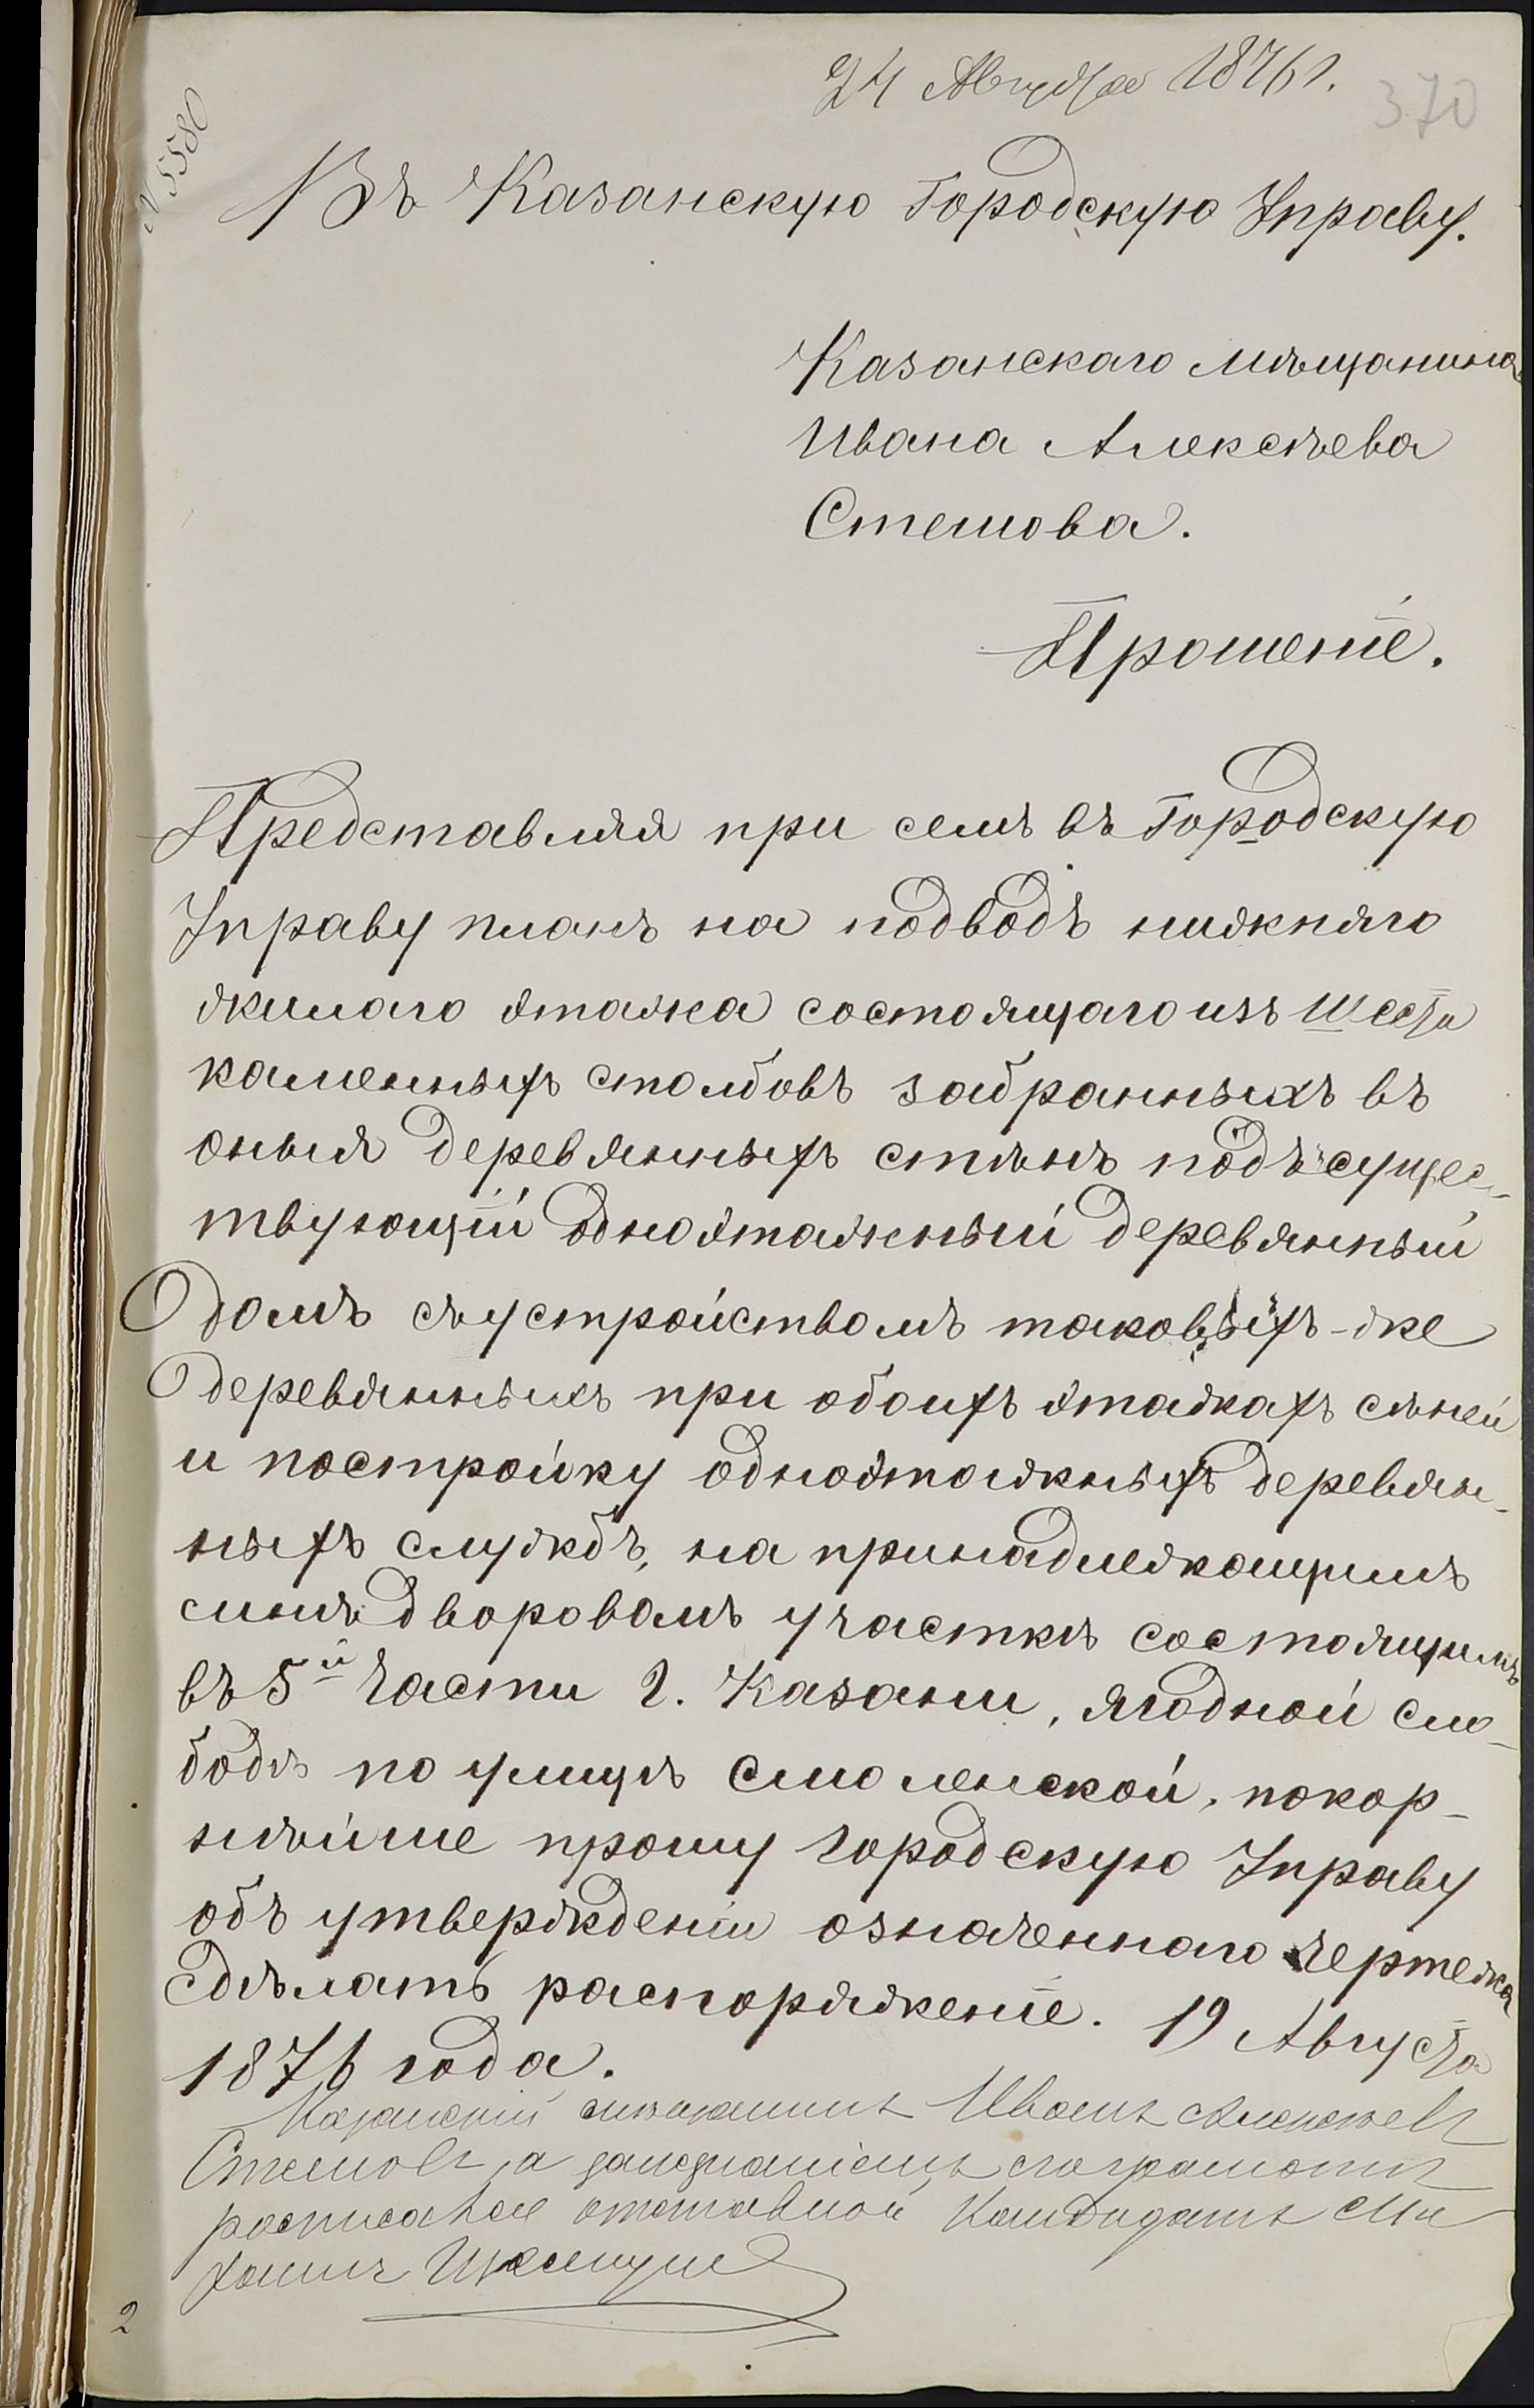 24 Августа 1876 г.
370
№ 5580
Въ Казанскую Городскую Управу.
Казанскаго мѣщанина
Ивана Алексѣева
Стешова.
Прошеніе.
Представляя при семъ въ Городскую
Управу планъ на подводъ нижняго
жилаго этажа состоящаго изъ шести
каменныхъ столбовъ забранныхъ въ
оныя деревянныхъ стѣнъ подъ сущес-
твующій одноэтажный деревянный
домъ съ устройствомъ таковыхъ-же
деревянныхъ при обоихъ этажахъ сѣней
и постройку одноэтажныхъ деревян-
ныхъ службъ, на принадлежащимъ
мнѣ дворовомъ участкѣ состоящимъ
въ 5й части г. Казани, Ягодной сло-
бодѣ по улицѣ Смоленской, покор-
нѣйше прошу городскую Управу
объ утвержденіи означеннаго чертежа
сдѣлать распоряженіе. 19 Августа
1876 года.
Казанскій мѣщанинъ Иванъ Алексѣевъ
Стешовъ, а
росписался отставной Кандидатъ Ми
2